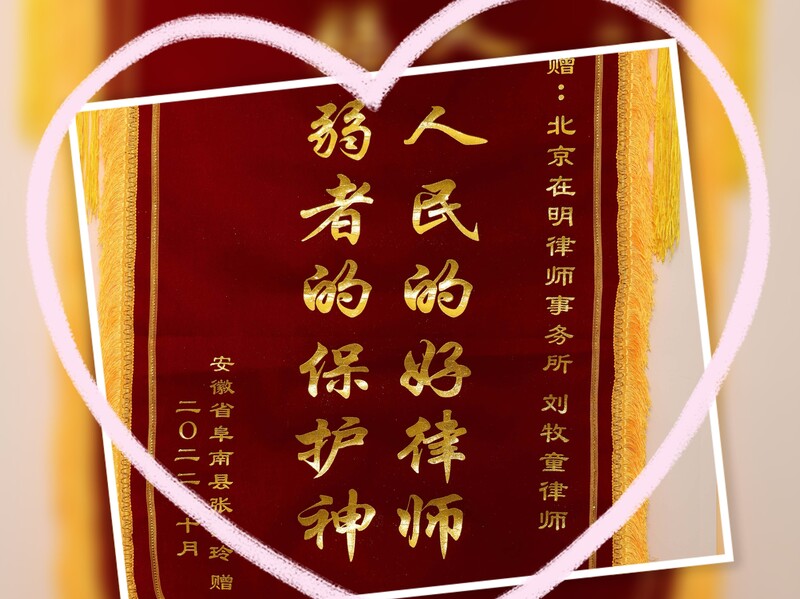 赠：北京在明律师事务所 刘牧童律师
人民的好律师
弱者的保护神
安徽省阜南县张 玲 赠
二〇二二 十月